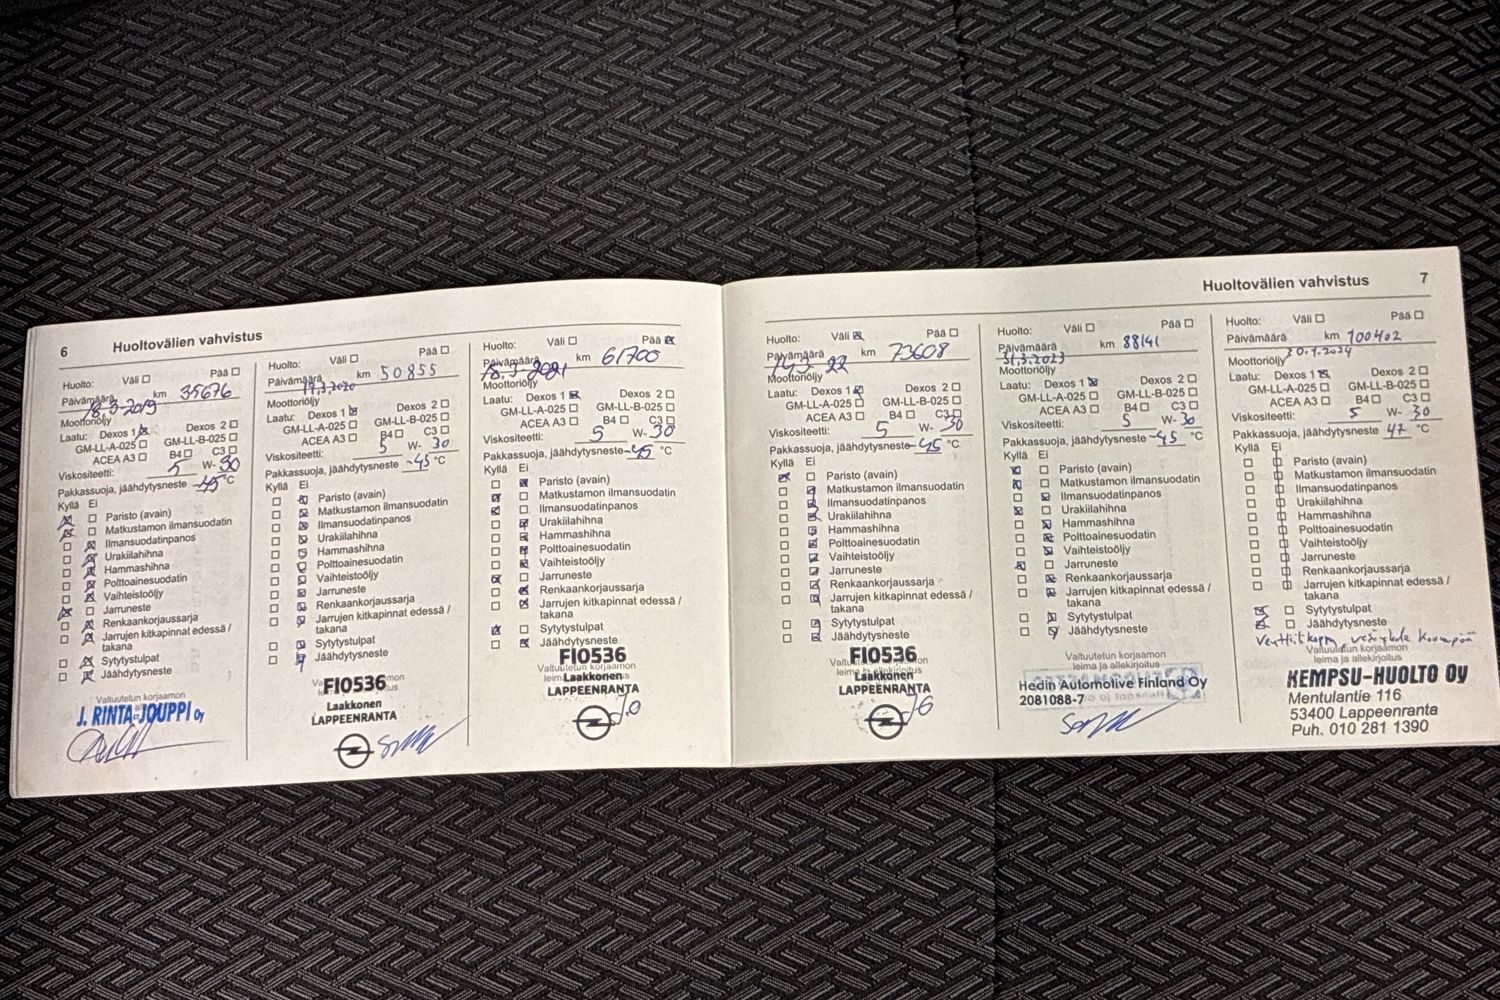 6 Huoltovälien vahvistus
Huolto: Väli Pää
Päivämäärä 18.3.2019 km 35676
Moottoriöljy
Laatu: Dexos 1 Dexos 2
GM-LL-A-025 GM-LL-B-025
ACEA A3 B4 C3
Viskositeetti: 5 W- 30
Pakkassuoja, jäähdytysneste -45 °C
Kyllä Ei
Paristo (avain)
Matkustamon ilmansuodatin
Ilmansuodatinpanos
Urakiilahihna
Hammashihna
Polttoainesuodatin
Vaihteistoöljy
Jarruneste
Renkaankorjaussarja
Jarrujen kitkapinnat edessä /
takana
Sytytystulpat
Jäähdytysneste
Valtuutetun korjaamon
J. RINTA-JOUPPI Oy
Huolto: Väli Pää
Päivämäärä 17.3.2020 km 50855
Moottoriöljy
Laatu: Dexos 1 Dexos 2
GM-LL-A-025 GM-LL-B-025
ACEA A3 B4 C3
Viskositeetti: 5 W- 30
Pakkassuoja, jäähdytysneste -45 °C
Kyllä Ei
Paristo (avain)
Matkustamon ilmansuodatin
Ilmansuodatinpanos
Urakiilahihna
Hammashihna
Polttoainesuodatin
Vaihteistoöljy
Jarruneste
Renkaankorjaussarja
Jarrujen kitkapinnat edessä /
takana
Sytytystulpat
Jäähdytysneste
FI0536
Laakkonen
LAPPEENRANTA
Huolto: Väli Pää
Päivämäärä 18.3.2021 km 61700
Moottoriöljy
Laatu: Dexos 1 Dexos 2
GM-LL-A-025 GM-LL-B-025
ACEA A3 B4 C3
Viskositeetti: 5 W- 30
Pakkassuoja, jäähdytysneste -45 °C
Kyllä Ei
Paristo (avain)
Matkustamon ilmansuodatin
Ilmansuodatinpanos
Urakiilahihna
Hammashihna
Polttoainesuodatin
Vaihteistoöljy
Jarruneste
Renkaankorjaussarja
Jarrujen kitkapinnat edessä /
takana
Sytytystulpat
Jäähdytysneste
FI0536
Valtuutetun korjaamon
Laakkonen
LAPPEENRANTA
J.O
Huoltovälien vahvistus 7
Huolto: Väli Pää
Päivämäärä 14.3.22 km 73608
Moottoriöljy
Laatu: Dexos 1 Dexos 2
GM-LL-A-025 GM-LL-B-025
ACEA A3 B4 C3
Viskositeetti: 5 W- 30
Pakkassuoja, jäähdytysneste -45 °C
Kyllä Ei
Paristo (avain)
Matkustamon ilmansuodatin
Ilmansuodatinpanos
Urakiilahihna
Hammashihna
Polttoainesuodatin
Vaihteistoöljy
Jarruneste
Renkaankorjaussarja
Jarrujen kitkapinnat edessä /
takana
Sytytystulpat
Jäähdytysneste
FI0536
Laakkonen
LAPPEENRANTA
Huolto: Väli Pää
Päivämäärä km 88141
31.3.2023
Moottoriöljy
Laatu: Dexos 1 Dexos 2
GM-LL-A-025 GM-LL-B-025
ACEA A3 B4 C3
Viskositeetti: 5 W- 30
Pakkassuoja, jäähdytysneste -45 °C
Kyllä Ei
Paristo (avain)
Matkustamon ilmansuodatin
Ilmansuodatinpanos
Urakiilahihna
Hammashihna
Polttoainesuodatin
Vaihteistoöljy
Jarruneste
Renkaankorjaussarja
Jarrujen kitkapinnat edessä /
takana
Sytytystulpat
Jäähdytysneste
Valtuutetun korjaamon
leima ja allekirjoitus
Hedin Automotive Finland Oy
2081088-7
Huolto: Väli Pää
Päivämäärä km 100402
Moottoriöljy
Laatu: Dexos 1 Dexos 2
GM-LL-A-025 GM-LL-B-025
ACEA A3 B4 C3
Viskositeetti: 5 W- 30
Pakkassuoja, jäähdytysneste 47 °C
Kyllä Ei
Paristo (avain)
Matkustamon ilmansuodatin
Ilmansuodatinpanos
Urakiilahihna
Hammashihna
Polttoainesuodatin
Vaihteistoöljy
Jarruneste
Renkaankorjaussarja
Jarrujen kitkapinnat edessä /
takana
Sytytystulpat
Jäähdytysneste
Valtuutetun korjaamon
leima ja allekirjoitus
KEMPSU-HUOLTO Oy
Mentulantie 116
53400 Lappeenranta
Puh. 010 281 1390